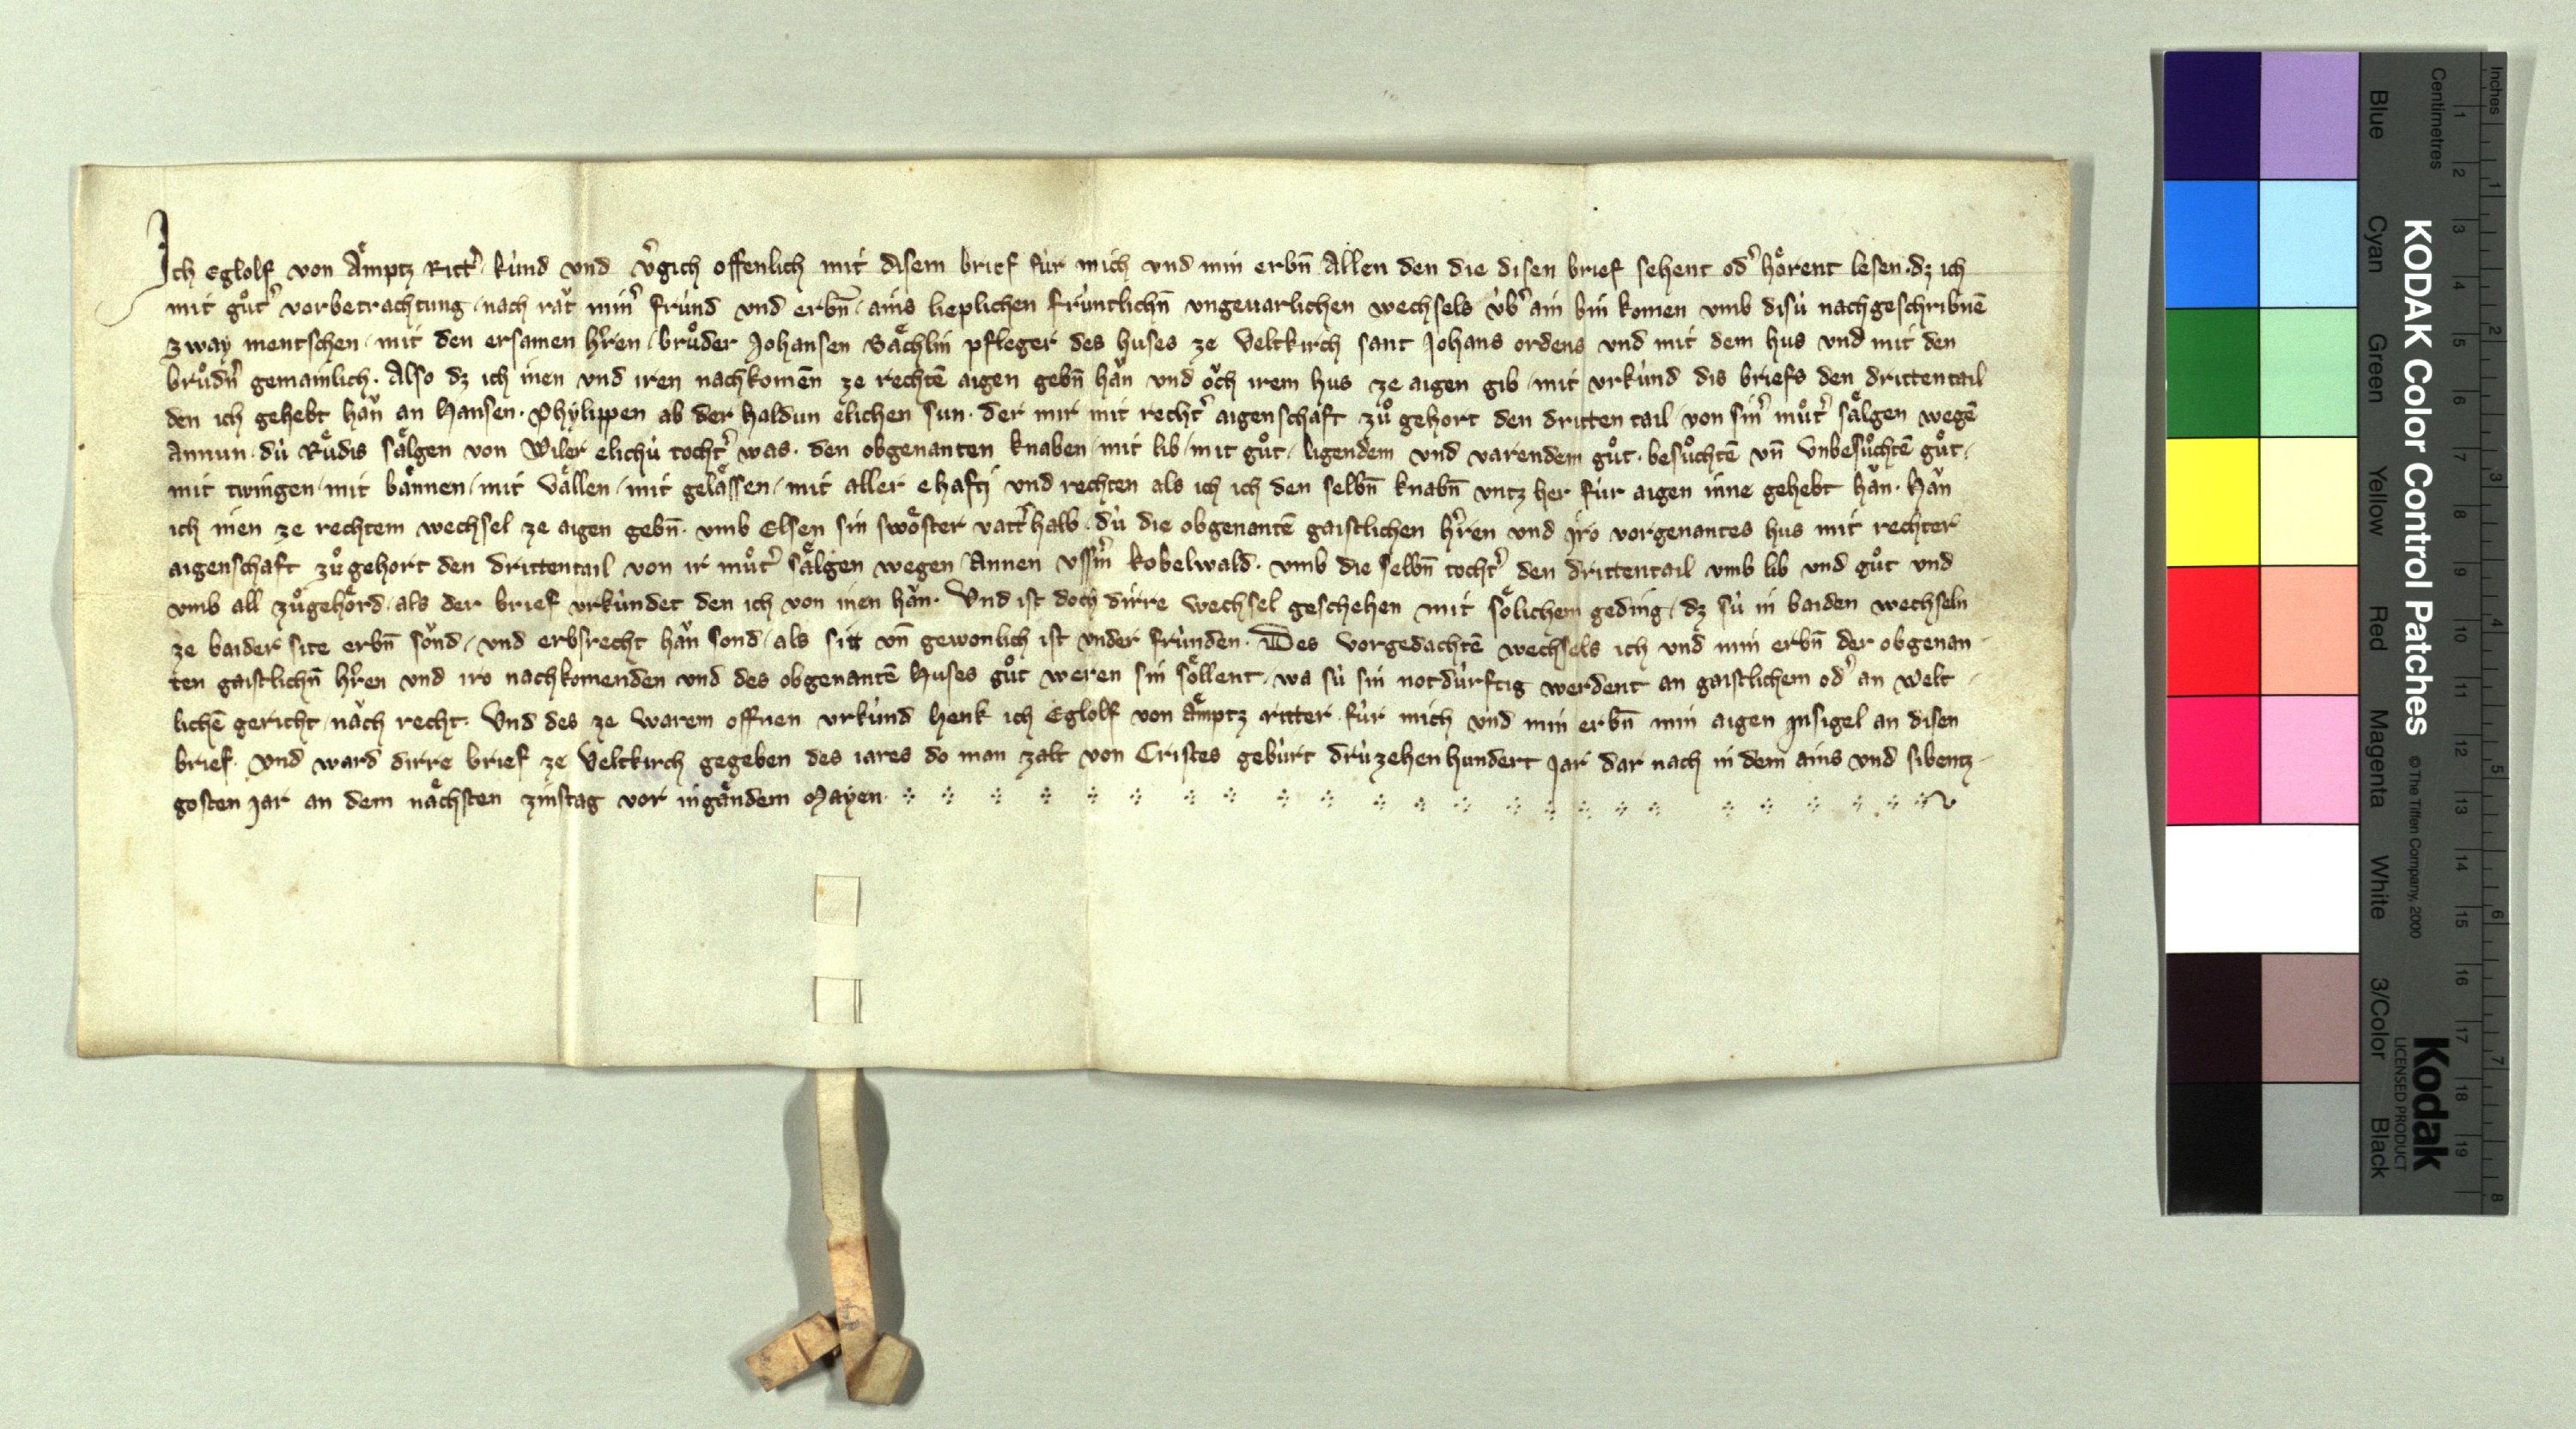 Ich Eglolf von Aͤmptz Rittʼ kúnd vnd vʼgich offenlich mit disem brief fúr mich vnd min erbn̄ Allen den die disen brief sehent odʼ hoͤrent lesen · dz ich
mit guͦtʼ vorbetrachtung / nach rat minʼ frúnd vnd erbn̄ / ains lieplichen frúntlichn̄ vngeuarlichen wechsels v́bʼ ain bin komen vmb disú nachgeschribnē
zway mentschen / mit den ersamen hʼren / bruͦder Johansen Baͤchlin pfleger des huses ze Veltkirch sant Johans ordens vnd mit dem hus vnd mit den
bruͦdnʼ gemainlich · Also dz ich inen vnd iren nachkomēn ze rechtē aigen gebn̄ han vnd och irem hus ze aigen gib / mit vrkúnd dis briefs den drittentail
den ich gehebt han an Hansen · Phylippen ab der haldun elichen sun · der mir mit rechtʼ aigenschaft zuͦ gehort den dritten tail von sinʼ muͦtʼ saͤlgen wegē
Annun · dú Ruͤdis saͤlgen von Wiler elichú tochtʼ was · den obgenanten knaben / mit lib / mit guͦt / ligendem vnd varendem guͦt · besuͦchtē vn̄ vnbesuͦchtē guͦt /
mit twingen / mit baͤnnen / mit vaͤllen / mit gelaͤssen / mit aller ehafti vnd rechten als ich ich den selbn̄ knabn̄ vntz her fúr aigen inne gehebt han · Han
ich inen ze rechtem wechsel ze aigen gebn̄ · vmb Elsen sin swoͤster vattʼhalb · dú die obgenantē gaistlichen hʼren vnd iro vorgenantes hus mit rechter
aigenschaft zuͦgehort den drittentail von ir muͦtʼ saͤlgen wegen Annen vssʼm kobelwald · vmb die selbn̄ tochtʼ den drittentail vmb lib vnd guͦt vnd
vmb all zuͦgehoͤrd / als der brief vrkúndet den ich von inen han · Vnd ist doch dirre wechsel geschehen mit soͤlichem geding / dz sú in baiden wechseln
ze baider site erbn̄ sond / vnd erbsrecht han sond / als sitt vn̄ gewonlich ist vnder frúnden · Des vorgedachtē wechsels ich vnd min erbn̄ der obgenan
ten gaistlichn̄ hʼren vnd iro nachkomenden vnd des obgenantē Huses guͦt weren sin soͤllent / wa sú sin notdúrftig werdent an gaistlichem odʼ an welt
lichē gericht / nach recht · Vnd des ze warem offnen vrkúnd henk ich Eglolf von Aͤmptz ritter · fúr mich vnd min erbn̄ min aigen Insigel an disen
brief · vnd ward dirre brief ze Veltkirch gegeben des iares do man zalt von Cristes gebúrt drúzehenhundert Jar dar nach in dem ains vnd sibentz
gosten Jar an dem naͤchsten zinstag vor ingaͤndem Mayen ·
KODAK Color Control Patches
© The Tiffen Company, 2000
Kodak
LICENSED PRODUCT
Blue Cyan Green Yellow Red Magenta White 3/Color Black
Centimetres
1 2 3 4 5 6 7 8 9 10 11 12 13 14 15 16 17 18 19
Inches
1 2 3 4 5 6 7 8